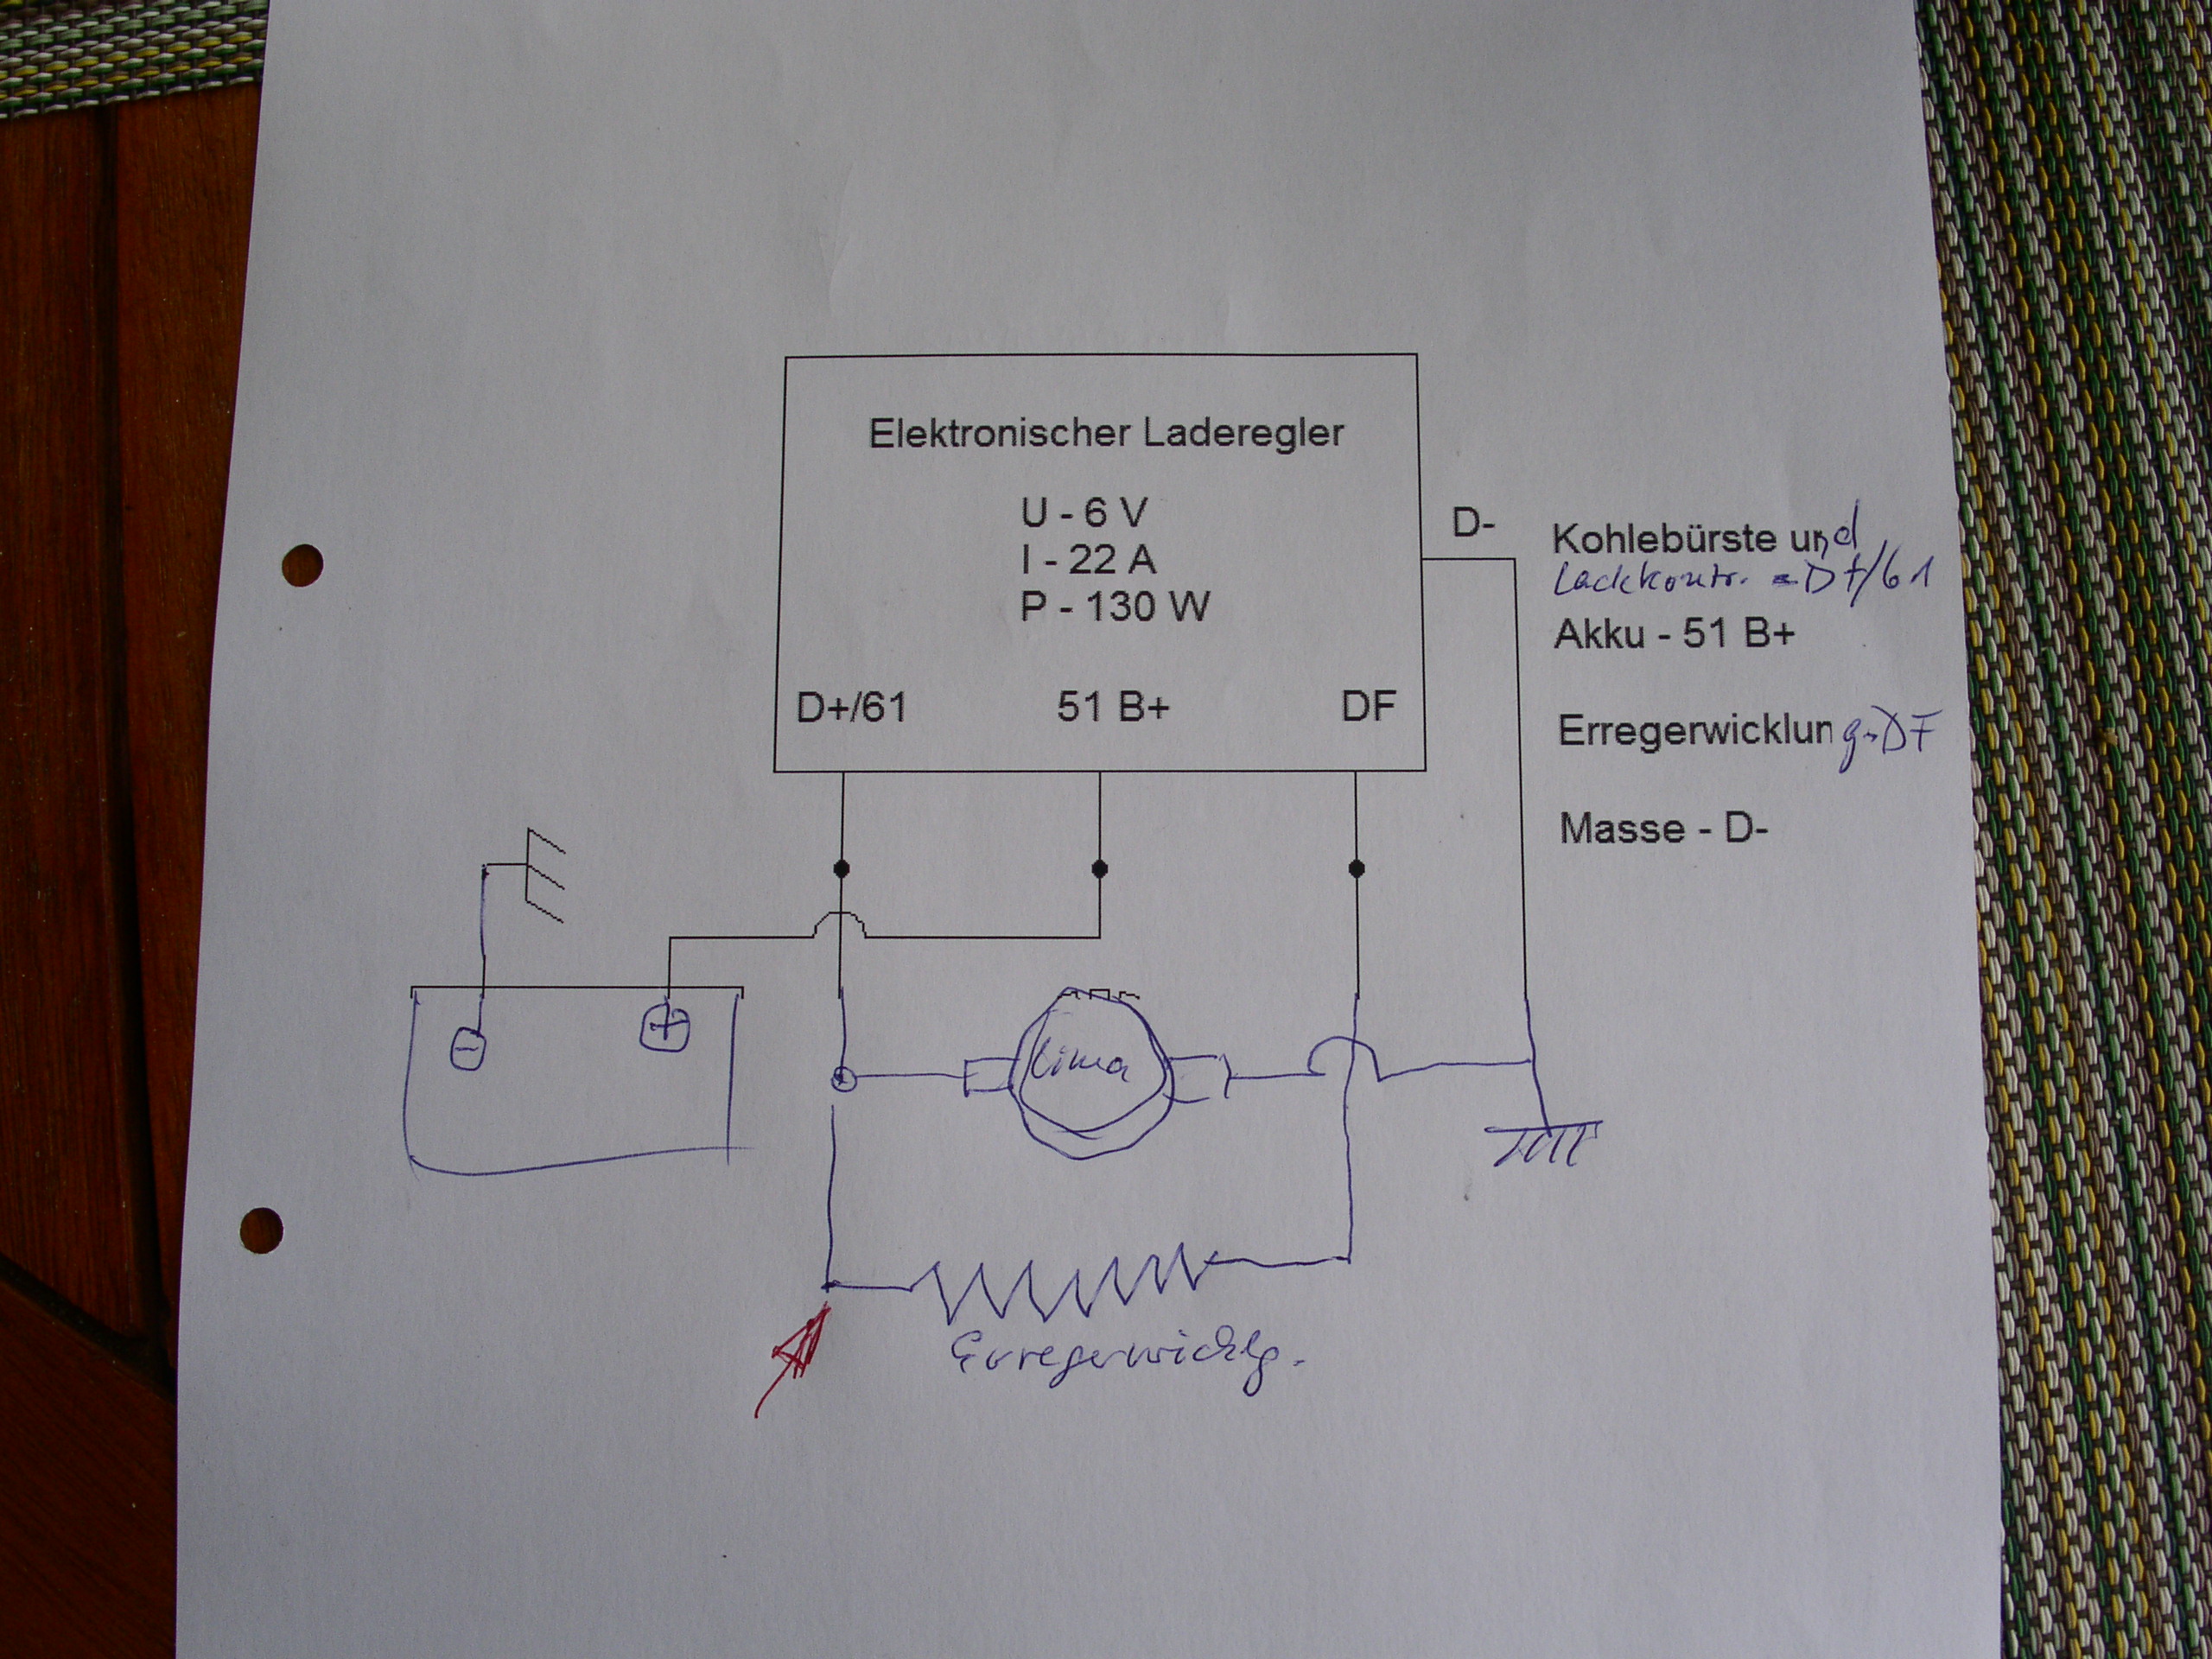 Elektronischer Laderegler
U - 6 V
I - 22 A
P - 130 W
D+/61
51 B+
DF
D-
Kohlebürste und
Ladekontr. - D+/61
Akku - 51 B+
Erregerwicklung - DF
Masse - D-
-
+
Lima
Erregerwicklg.